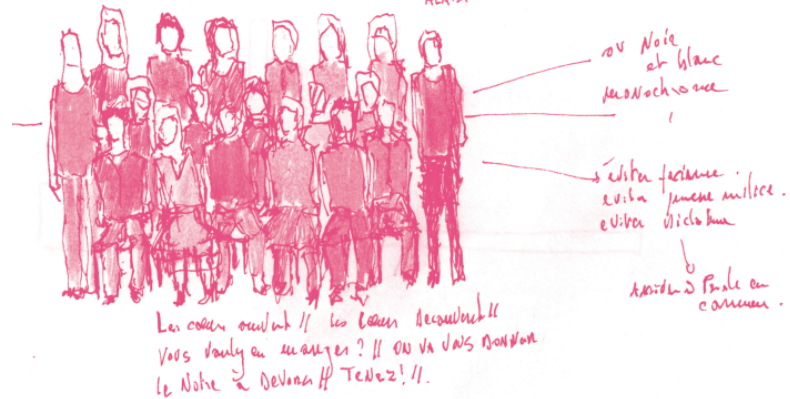 ou Noir
et blanc
monochrome
éviter
éviter jeune milice.
éviter dictature
commun.
Les cœurs ouverts // les cœurs découverts //
Vous voulez en manger ? // ON VA VOUS DONNER
le Nôtre à Dévorer // TENEZ ! //.